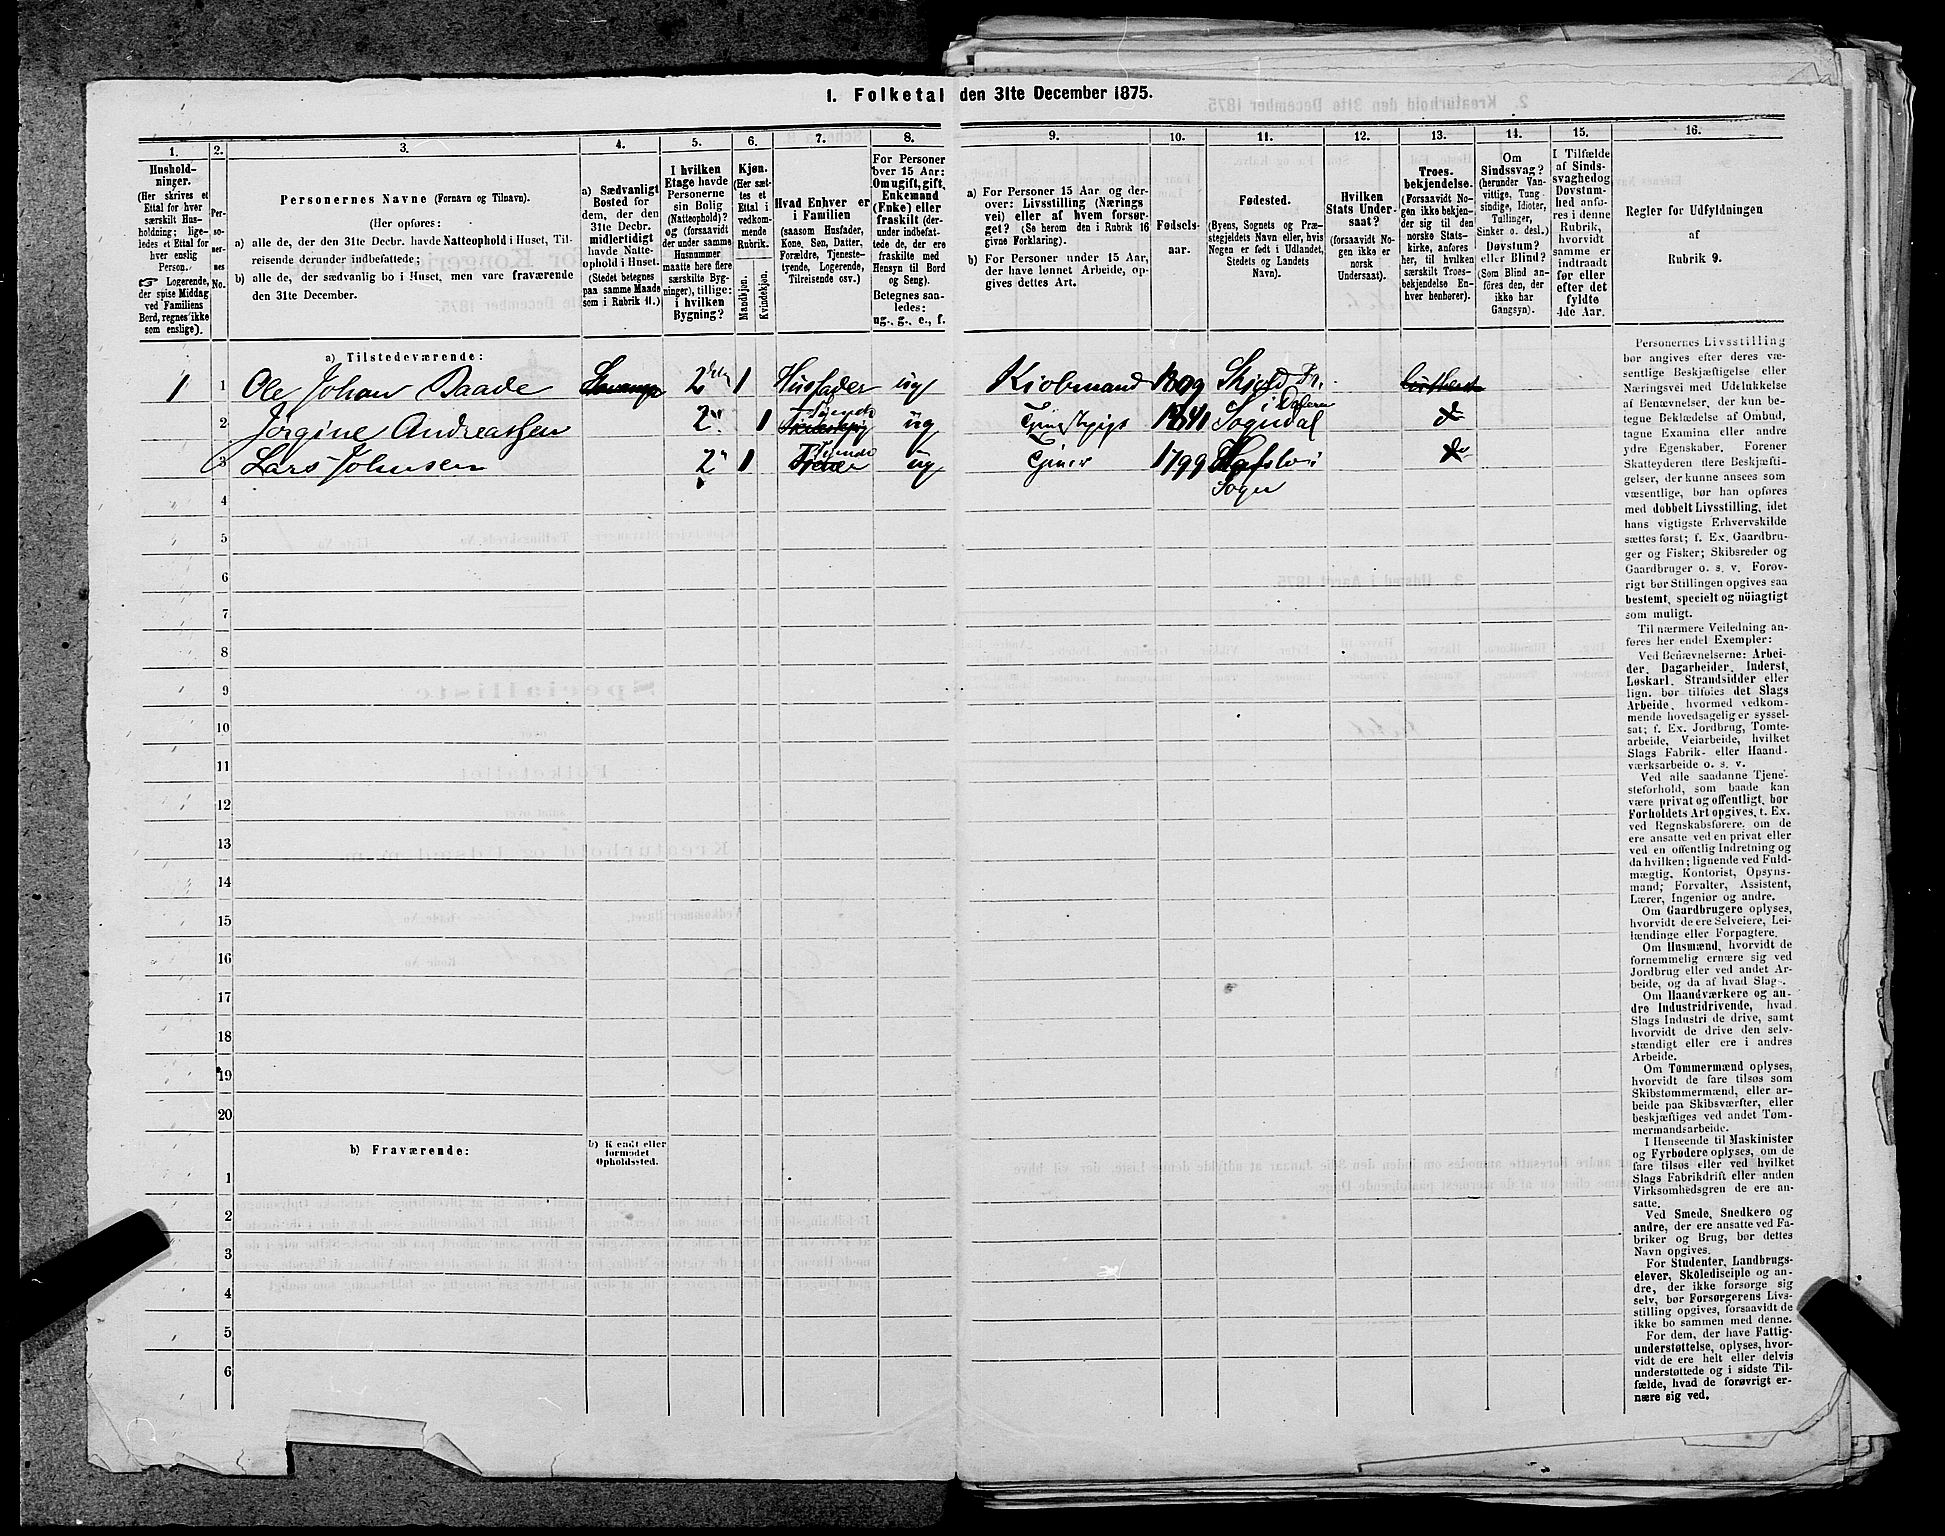 1. Folketal den 31te December 1875.
1. 2. 3. 4. 5. 6. 7. 8. 9. 10. 11. 12. 13. 14. 15. 16.
Hushold-
ninger.
(Her skrives et
Ettal for hver
særskilt Hus-
holdning; lige-
ledes et Ettal for
hver enslig
Person.
☞ Logerende,
der spise Middag
ved Familiens
Bord, regnes ikke
som enslige).
Per-
so-
ner-
nes
No.
Personernes Navne (Fornavn og Tilnavn).
(Her opføres:
a) alle de, der den 31te Decbr. havde Natteophold i Huset, Til-
reisende derunder indbefattede;
b) alle de, der sædvanlig bo i Huset, men vare fraværende
den 31te December.
a) Sædvanligt
Bosted for
dem, der den
31te Decbr.
midlertidigt
havde Natte-
ophold i Huset.
(Stedet betegnes
paa samme Maade
som i Rubrik 11.)
I hvilken
Etage havde
Personerne
sin Bolig
(Natteophold)?
og (forsaavidt
der under samme
Husnummer
maatte høre flere
særskilte Byg-
ninger), tillige:
i hvilken
Bygning?
Kjøn.
(Her sæt-
tes et
Ettal i
vedkom-
mende
Rubrik.
Mandkjøn.
Kvindekjøn.
Hvad Enhver er
i Familien
(saasom Husfader,
Kone, Søn, Datter,
Forældre, Tjeneste-
tyende, Logerende,
Tilreisende osv.)
For Personer
over 15 Aar:
Om ugift, gift,
Enkemand
(Enke) eller
fraskilt (der-
under indbefat-
tede de, der ere
fraskilte med
Hensyn til Bord
og Seng).
Betegnes saa-
ledes:
ug., g., e., f.
a) For Personer 15 Aar og der-
over: Livsstilling (Nærings
vei) eller af hvem forsør-
get? (Se herom den i Rubrik 16
givne Forklaring).
b) For Personer under 15 Aar,
der have lønnet Arbeide, op-
gives dettes Art.
Fødsels-
aar.
Fødested.
(Byens, Sognets og Præ-
stegjeldets Navn eller, hvis
Nogen er født i Udlandet,
Stedets og Landets
Navn).
Hvilken
Stats Under-
saat?
(forsaavidt No-
gen ikke er
norsk
Undersaat).
Troes-
bekjendelse.
(Forsaavidt No-
gen ikke beken-
der sig til den
norske Stats-
kirke, anføres
her, til hvilken
særskilt Troes-
bekjendelse En-
hver henhører).
Om
Sindssvag?
(herunder Van-
vittige, Tung-
sindige, Idioter,
Tullinger,
Sinker o. desl.)
Døvstum?
eller Blind?
(Som Blind an-
føres den, der
ikke har
Gangsyn).
I Tilfælde
af Sinds-
svaghed og
Døvstum-
hed anfø-
res i denne
Rubrik,
hvorvidt
samme er
indtraadt
før eller
efter det
fyldte
4de Aar.
Regler for Udfyldningen
af
Rubrik 9.
a) Tilstedeværende:
1 1 Ole Johan Baade 2 1 Husfader ug Kjøbmand 1809 Skjold
2 Jørgine Andreassen 2 1 Tyende ug 1841 Sogndal i Dalerne
3 Lars Johnsen 2 1 Tyende ug Tjener 1799 Hafslo i
Sogn
4
5
6
7
8
9
10
11
12
13
14
15
16
17
18
19
20
b) Fraværende:
b) Kjendt eller
formodet
Opholdssted.
1
2
3
4
5
6
Personernes Livsstilling
bør angives efter deres væ-
sentlige Beskjæftigelse eller
Næringsvei med Udelukkelse
af Benævnelser, der kun be-
tegne Beklædelse af Ombud,
tagne Examina eller andre
ydre Egenskaber. Forener
Skatteyderen flere Beskjæfti-
gelser, der kunne ansees som
væsentlige, bør han opføres
med dobbelt Livsstilling, idet
hans vigtigste Erhvervskilde
sættes først; f. Ex. Gaardbru-
ger og Fisker; Skibsreder og
Gaardbruger o. s. v. Forøv-
rigt bør Stillingen opgives saa
bestemt, specielt og nøiagtigt
som muligt.
Til nærmere Veiledning an-
føres her endel Exempler:
Ved Benævnelserne: Arbei-
der, Dagarbeider, Inderst,
Løskarl, Strandsidder eller
lign. bør tilføies det Slags
Arbeide, hvormed vedkom-
mende hovedsagelig er syssel-
sat; f. Ex. Jordbrug, Tomte-
arbeide, Veiarbeide, hvilket
Slags Fabrik- eller Haand-
værksarbeide o. s. v.
Ved alle saadanne Tjene-
steforhold, som baade kan
være privat og offentligt, bør
Forholdets Art opgives, t. Ex.
ved Regnskabsførere, om de
ere ansatte ved en privat eller
ved en offentlig Indretning og
da hvilken; lignende ved Fuld-
mægtig, Kontorist, Opsyns-
mand, Forvalter, Assistent,
Lærer, Ingeniør og andre.
Om Gaardbrugere oplyses,
hvorvidt de ere Selveiere, Lei-
lændinge eller Forpagtere.
Om Husmænd, hvorvidt de
fornemmelig ernære sig ved
Jordbrug eller ved andet Ar-
beide, og da af hvad Slags.
Om Haandværkere og an-
dre Industridrivende, hvad
Slags Industri de drive, samt
hvorvidt de drive den selv-
stændigt eller ere i andres
Arbeide.
Om Tømmermænd oplyses,
hvorvidt de fare tilsøs som
Skibstømmermænd, eller ar-
beide paa Skibsværfter, eller
beskjæftiges ved andet Tøm-
mermandsarbeide.
I Henseende til Maskinister
og Fyrbødere oplyses, om de
fare tilsøs eller ved hvilket
Slags Fabrikdrift eller anden
Virksomhedsgren de ere an-
satte.
Ved Smede, Snedkere og
andre, der ere ansatte ved Fa-
briker og Brug, bør dettes
Navn opgives.
For Studenter, Landbrugs-
elever, Skoledisciple og an-
dre, der ikke forsørge sig
selv, bør Forsørgerens Livs-
stilling opgives, forsaavidt de
ikke bo sammen med denne.
For dem, der have Fattig-
understøttelse, oplyses, hvor-
vidt de ere helt eller delvis
understøttede og i sidste Til-
fælde, hvad de forøvrigt er-
nære sig ved.